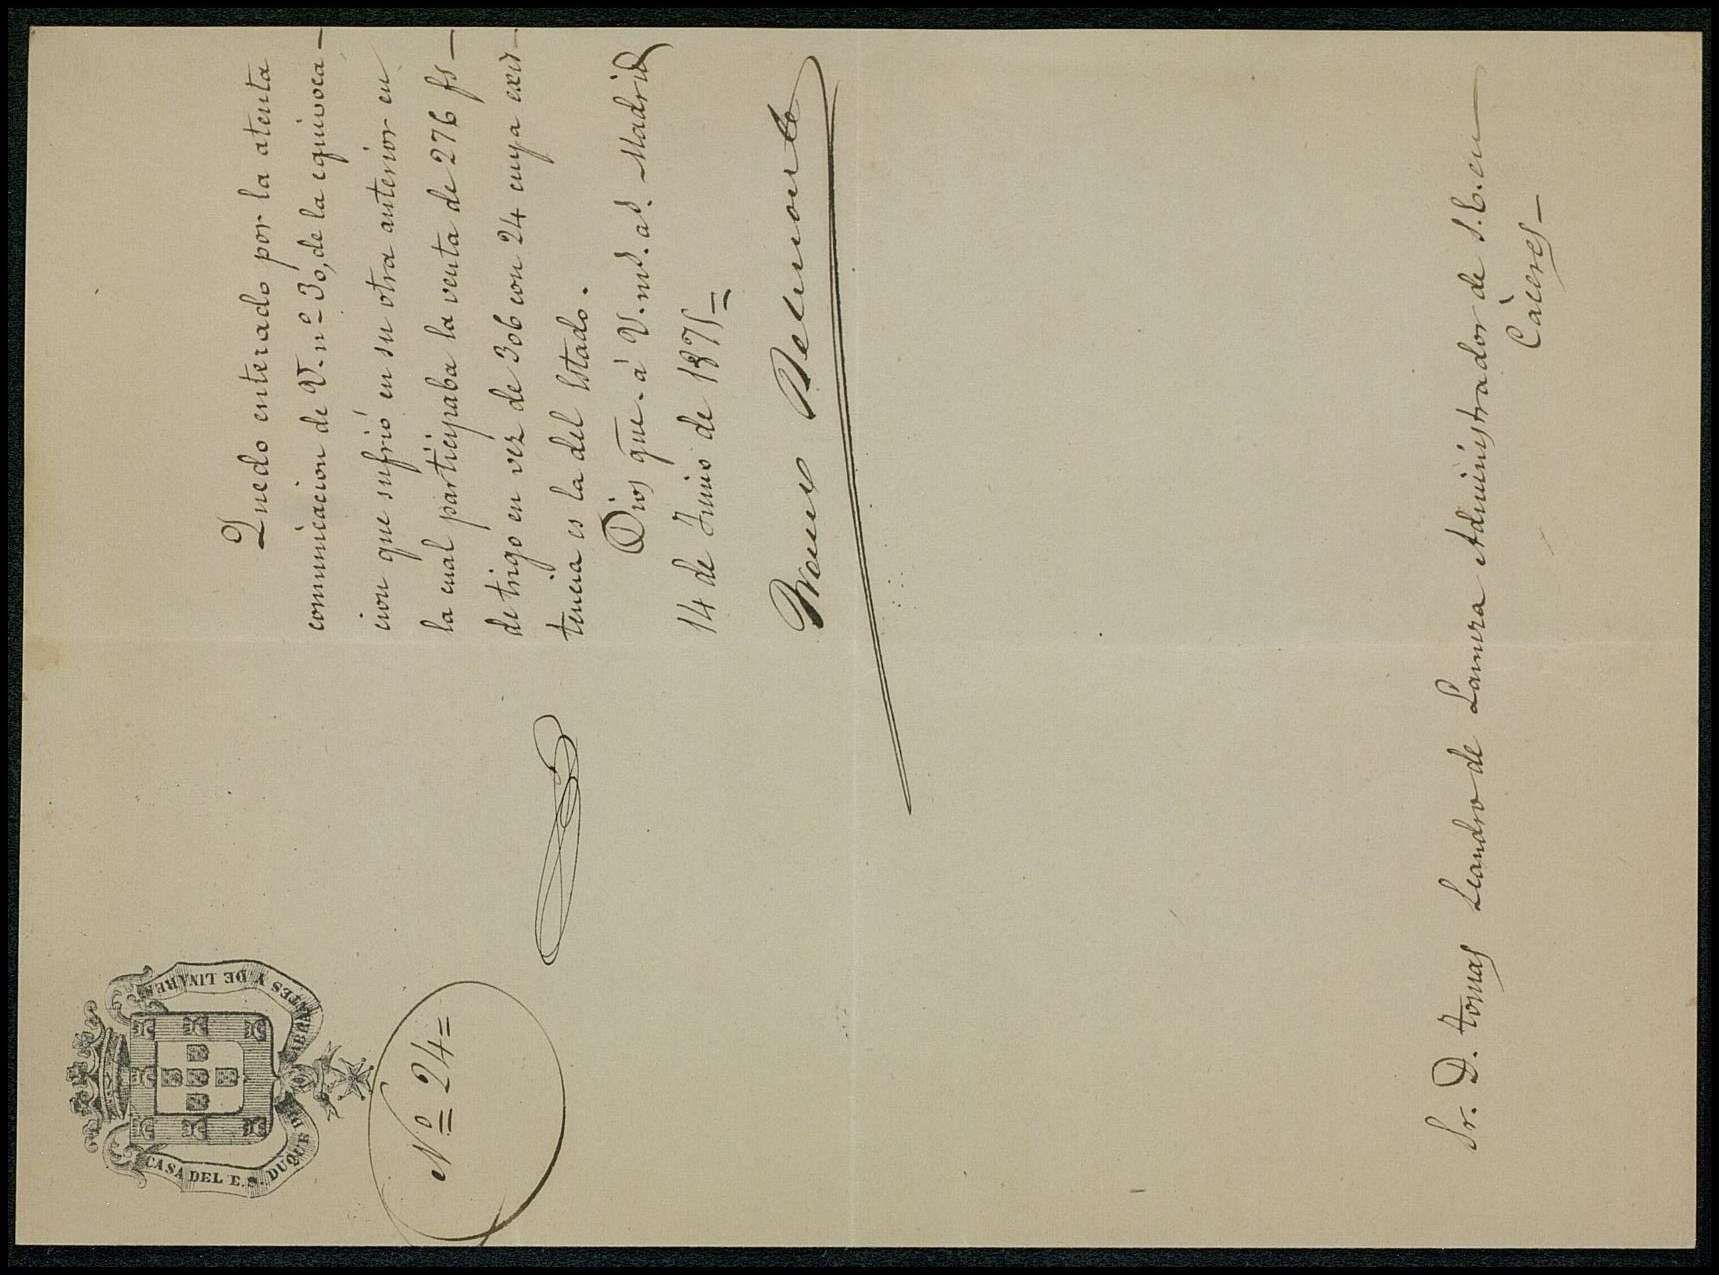 CASA DEL E. S. DUQUE DE ABRANTES Y DE LINARES
Nº 24=
Quedo enterado por la atenta
comunicacion de V. nº 30, de la equivoca-
cion que sufrió en su otra anterior en
la cual participaba la venta de 276 fs-
de trigo en vez de 306 con 24 cuya exis-
tencia es la del Estado.
Dios gue. á V. ms. as. Madrid
14 de Junio de 1875=
Belmonte
Sr. D. Tomas Leandro de Lamera Administrador de S. E. en
Cáceres-